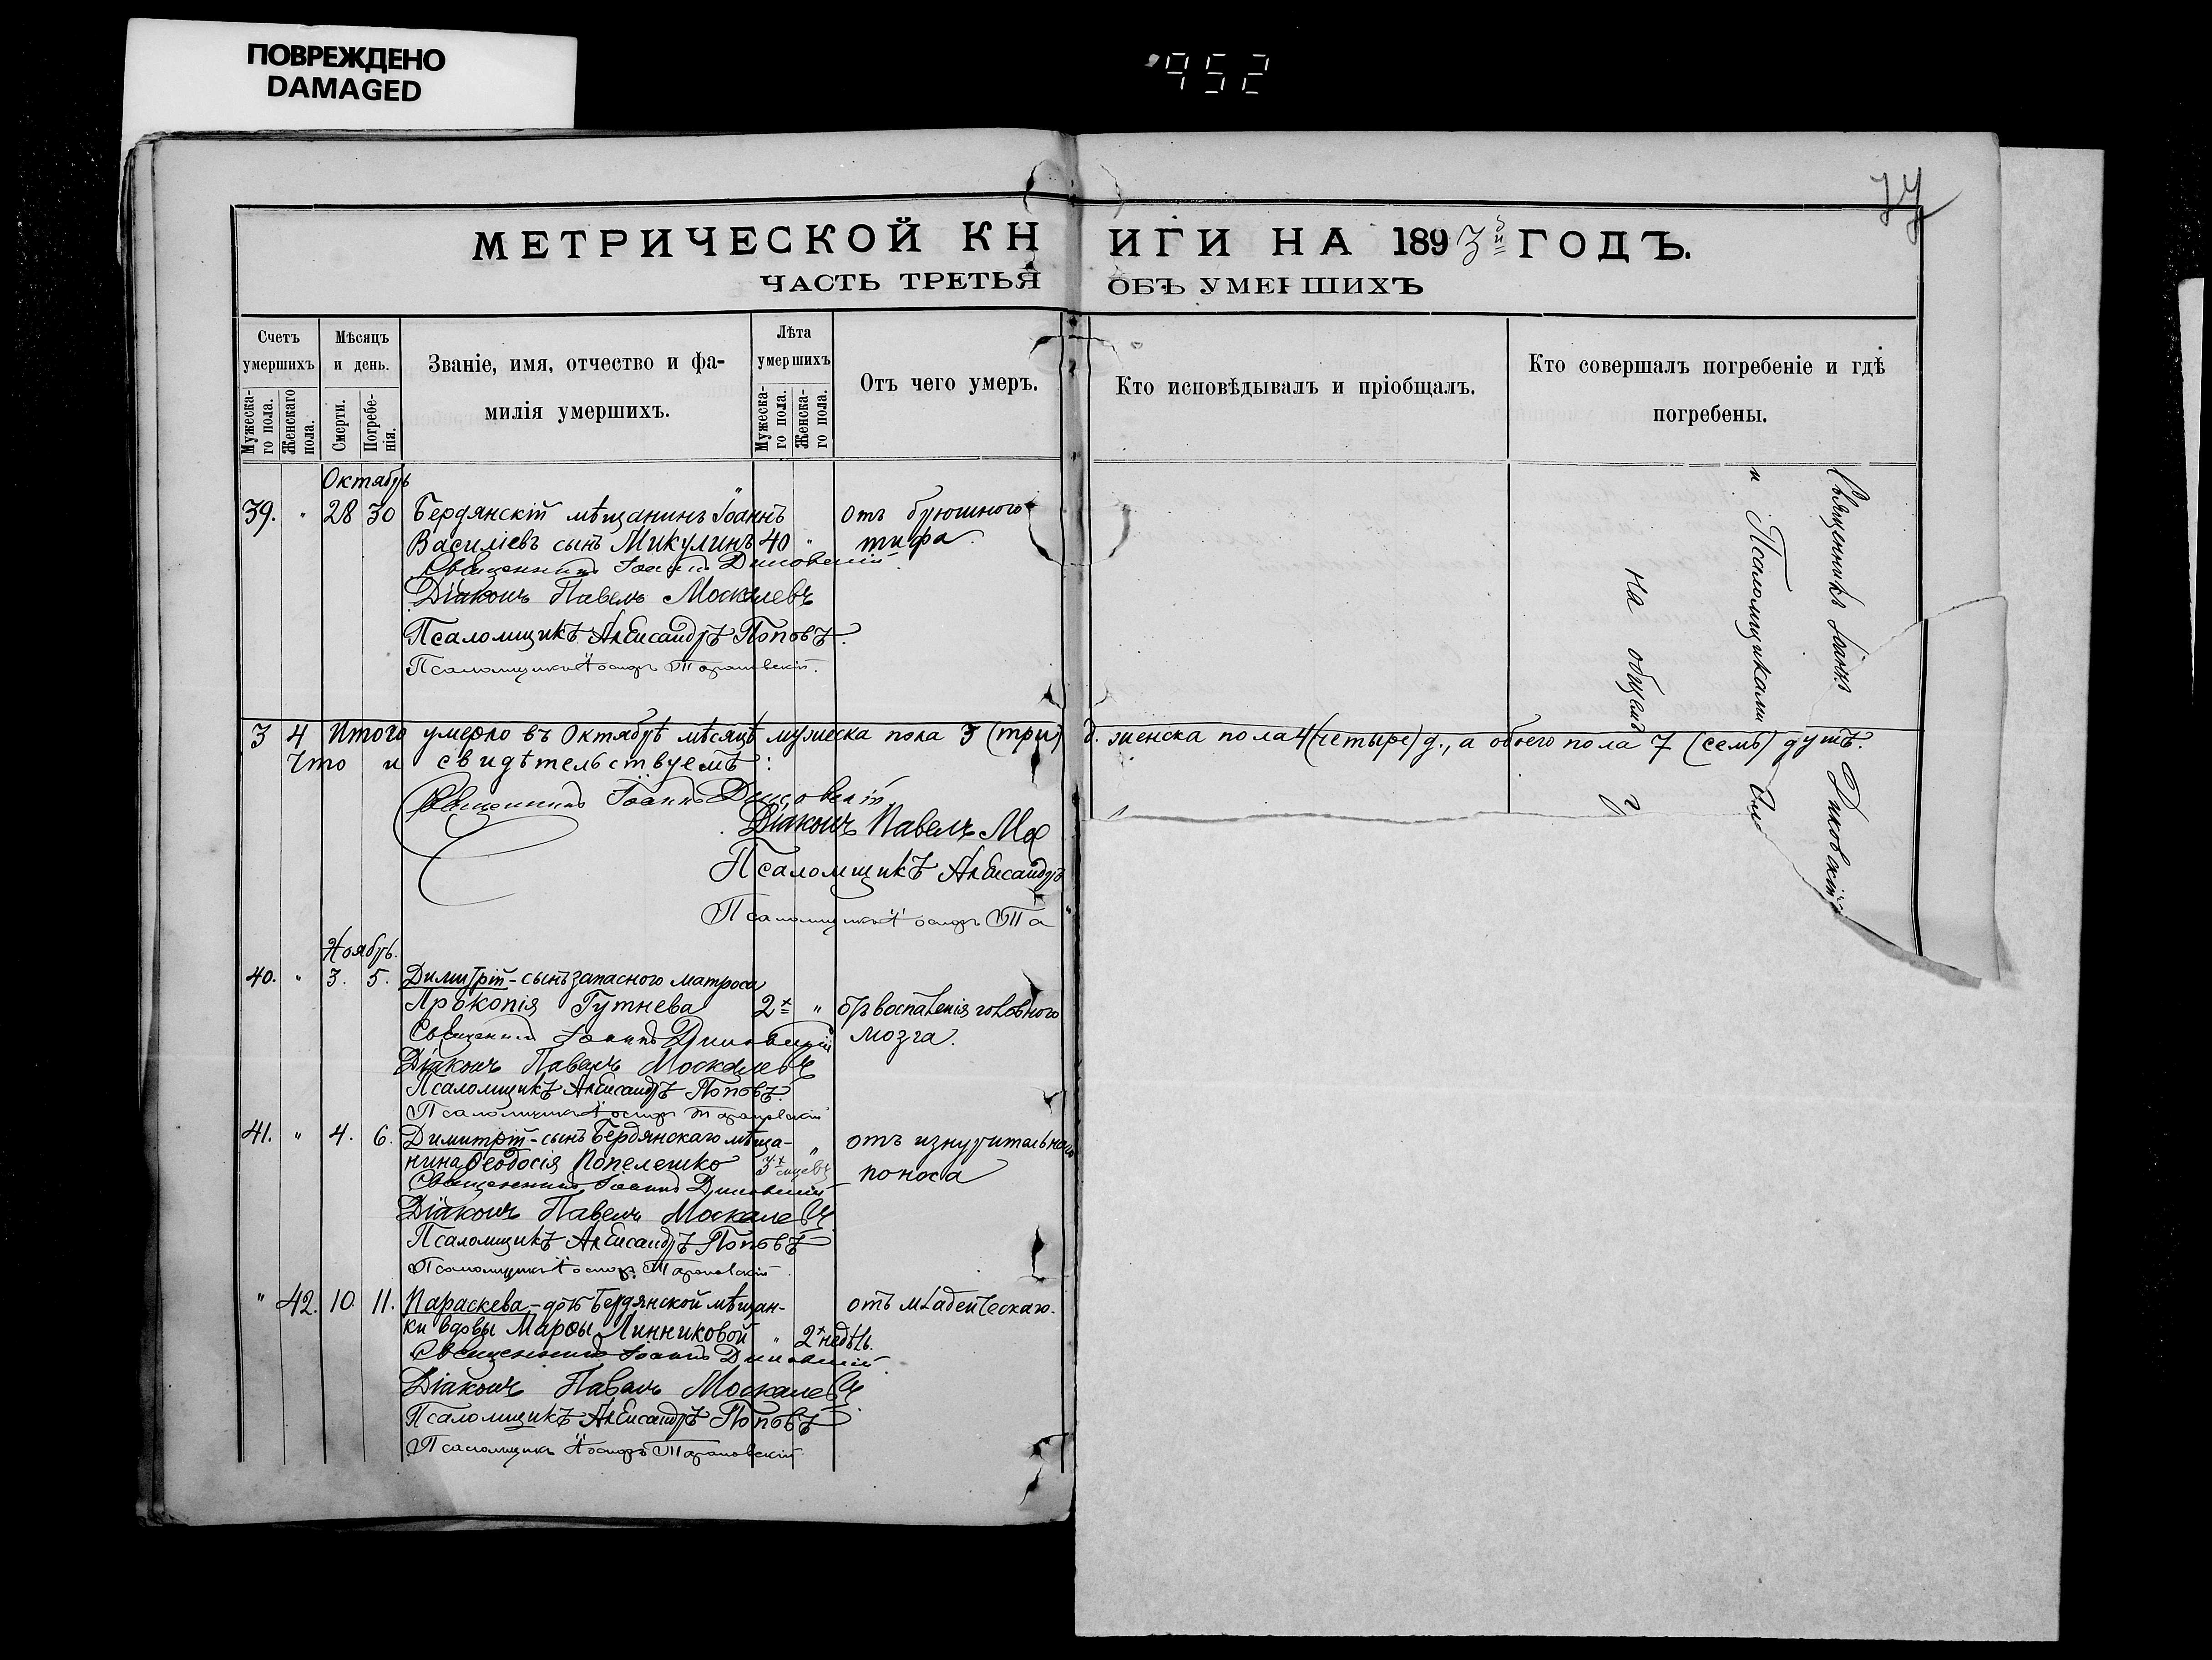 ПОВРЕЖДЕНО
DAMAGED
952
МЕТРИЧЕСКОЙ КНИГИ НА 1893й ГОДЪ.
ЧАСТЬ ТРЕТЬЯ ОБЪ УМЕРШИХЪ
Счетъ умершихъ
Мужеска-го пола.
Женскаго пола.
Мѣсяцъ и день.
Смерти.
Погребе-нія.
Званіе, имя, отчество и фа-
милія умершихъ.
Лѣта умершихъ
Мужеска-го пола.
Женска-го пола.
Отъ чего умеръ.
Кто исповѣдывалъ и пріобщалъ.
Кто совершалъ погребеніе и гдѣ
погребены.
Октябрь
39. " 28 30 Бердянскій мѣщанинъ Іоаннъ отъ брюшного
Василіевъ сынъ Микулинъ 40 " тифа.
Священникъ Іоаннъ Диковскій
Діаконъ Павелъ Москалевъ
Псаломщикъ Александръ Поповъ.
Псаломщикъ Іосифъ Тарановскій.
3 4 Итого умерло въ Октябрѣ мѣсяцѣ мужеска пола 3 (три) д. женска пола 4 (четыре) д., а обоего пола 7 (семь) душъ.
Что и свидѣтельствуемъ:
Священникъ Іоаннъ Диковскій
Діаконъ Павелъ Мо
Псаломщикъ Александръ
Псаломщикъ Іосифъ Та
Ноябрь.
40. " 3. 5. Димитрій - сынъ запасного матроса
Прокопія Гутнева 2х " отъ воспаленія головного
Священникъ Іоаннъ Диковскій мозга.
Діаконъ Павелъ Москалевъ
Псаломщикъ Александръ Поповъ.
Псаломщикъ Іосифъ Тарановскій
41. " 4. 6. Димитрій - сынъ Бердянскаго мѣща- " отъ изнурительнаго
нина Ѳеодосія Попелешко поноса
Священникъ Іоаннъ Диковскій
Діаконъ Павелъ Москалевъ
Псаломщикъ Александръ Поповъ
Псаломщикъ Іосифъ Тарановскій
" 42. 10. 11. Параскева - дочь Бердянской мѣщан- отъ младенческаго.
ки вдовы Марѳы Линниковой " 2х недѣль.
Священникъ Іоаннъ Диковскій
Діаконъ Павелъ Москалевъ
Псаломщикъ Александръ Поповъ.
Псаломщикъ Іосифъ Тарановскій
Священникъ Іоаннъ Диковскій
и Псаломщиками
на общемъ